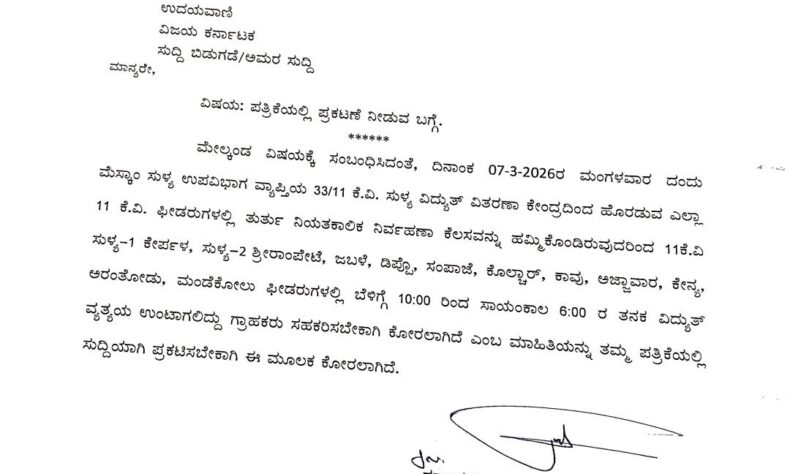 ಉದಯವಾಣಿ
ವಿಜಯ ಕರ್ನಾಟಕ
ಸುದ್ದಿ ಬಿಡುಗಡೆ/ಅಮರ ಸುದ್ದಿ
ಮಾನ್ಯರೇ,
ವಿಷಯ: ಪತ್ರಿಕೆಯಲ್ಲಿ ಪ್ರಕಟಣೆ ನೀಡುವ ಬಗ್ಗೆ.
******
ಮೇಲ್ಕಂಡ ವಿಷಯಕ್ಕೆ ಸಂಬಂಧಿಸಿದಂತೆ, ದಿನಾಂಕ 07-3-2026ರ ಮಂಗಳವಾರ ದಂದು
ಮೆಸ್ಕಾಂ ಸುಳ್ಯ ಉಪವಿಭಾಗ ವ್ಯಾಪ್ತಿಯ 33/11 ಕೆ.ವಿ. ಸುಳ್ಯ ವಿದ್ಯುತ್ ವಿತರಣಾ ಕೇಂದ್ರದಿಂದ ಹೊರಡುವ ಎಲ್ಲಾ
11 ಕೆ.ವಿ. ಫೀಡರುಗಳಲ್ಲಿ ತುರ್ತು ನಿಯತಕಾಲಿಕ ನಿರ್ವಹಣಾ ಕೆಲಸವನ್ನು ಹಮ್ಮಿಕೊಂಡಿರುವುದರಿಂದ 11ಕೆ.ವಿ
ಸುಳ್ಯ-1 ಕೇರ್ಪಳ, ಸುಳ್ಯ-2 ಶ್ರೀರಾಂಪೇಟೆ, ಜಬಳೆ, ಡಿಪ್ಪೊ, ಸಂಪಾಜೆ, ಕೊಲ್ಚಾರ್, ಕಾವು, ಅಜ್ಜಾವಾರ, ಕೇನ್ಯ,
ಅರಂತೋಡು, ಮಂಡೆಕೋಲು ಫೀಡರುಗಳಲ್ಲಿ ಬೆಳಿಗ್ಗೆ 10:00 ರಿಂದ ಸಾಯಂಕಾಲ 6:00 ರ ತನಕ ವಿದ್ಯುತ್
ವ್ಯತ್ಯಯ ಉಂಟಾಗಲಿದ್ದು ಗ್ರಾಹಕರು ಸಹಕರಿಸಬೇಕಾಗಿ ಕೋರಲಾಗಿದೆ ಎಂಬ ಮಾಹಿತಿಯನ್ನು ತಮ್ಮ ಪತ್ರಿಕೆಯಲ್ಲಿ
ಸುದ್ದಿಯಾಗಿ ಪ್ರಕಟಿಸಬೇಕಾಗಿ ಈ ಮೂಲಕ ಕೋರಲಾಗಿದೆ.